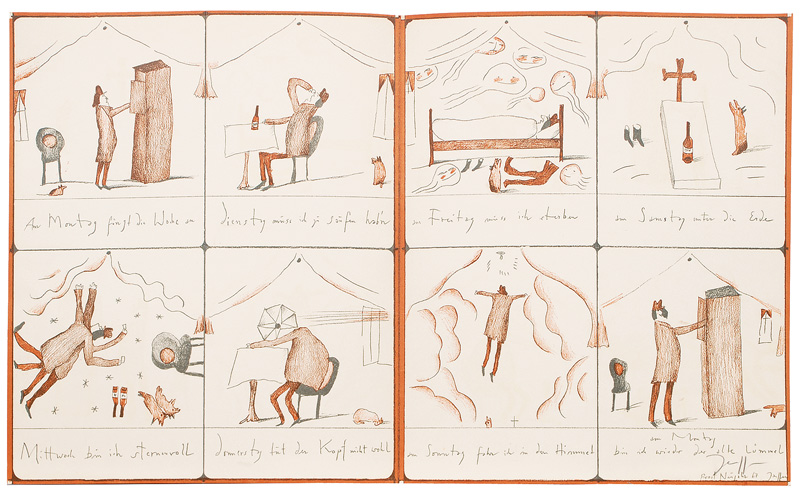 Am Montag fängt die Woche an
Dienstag muss ich ja saufen hab'n
Mittwoch bin ich sternenvoll
Donnerstag tut der Kopf nicht wohl
am Freitag muss ich sterben
am Samstag unter die Erde
am Sonntag fahr ich in den Himmel
am Montag
bin ich wieder der alte Lümmel
Janssen